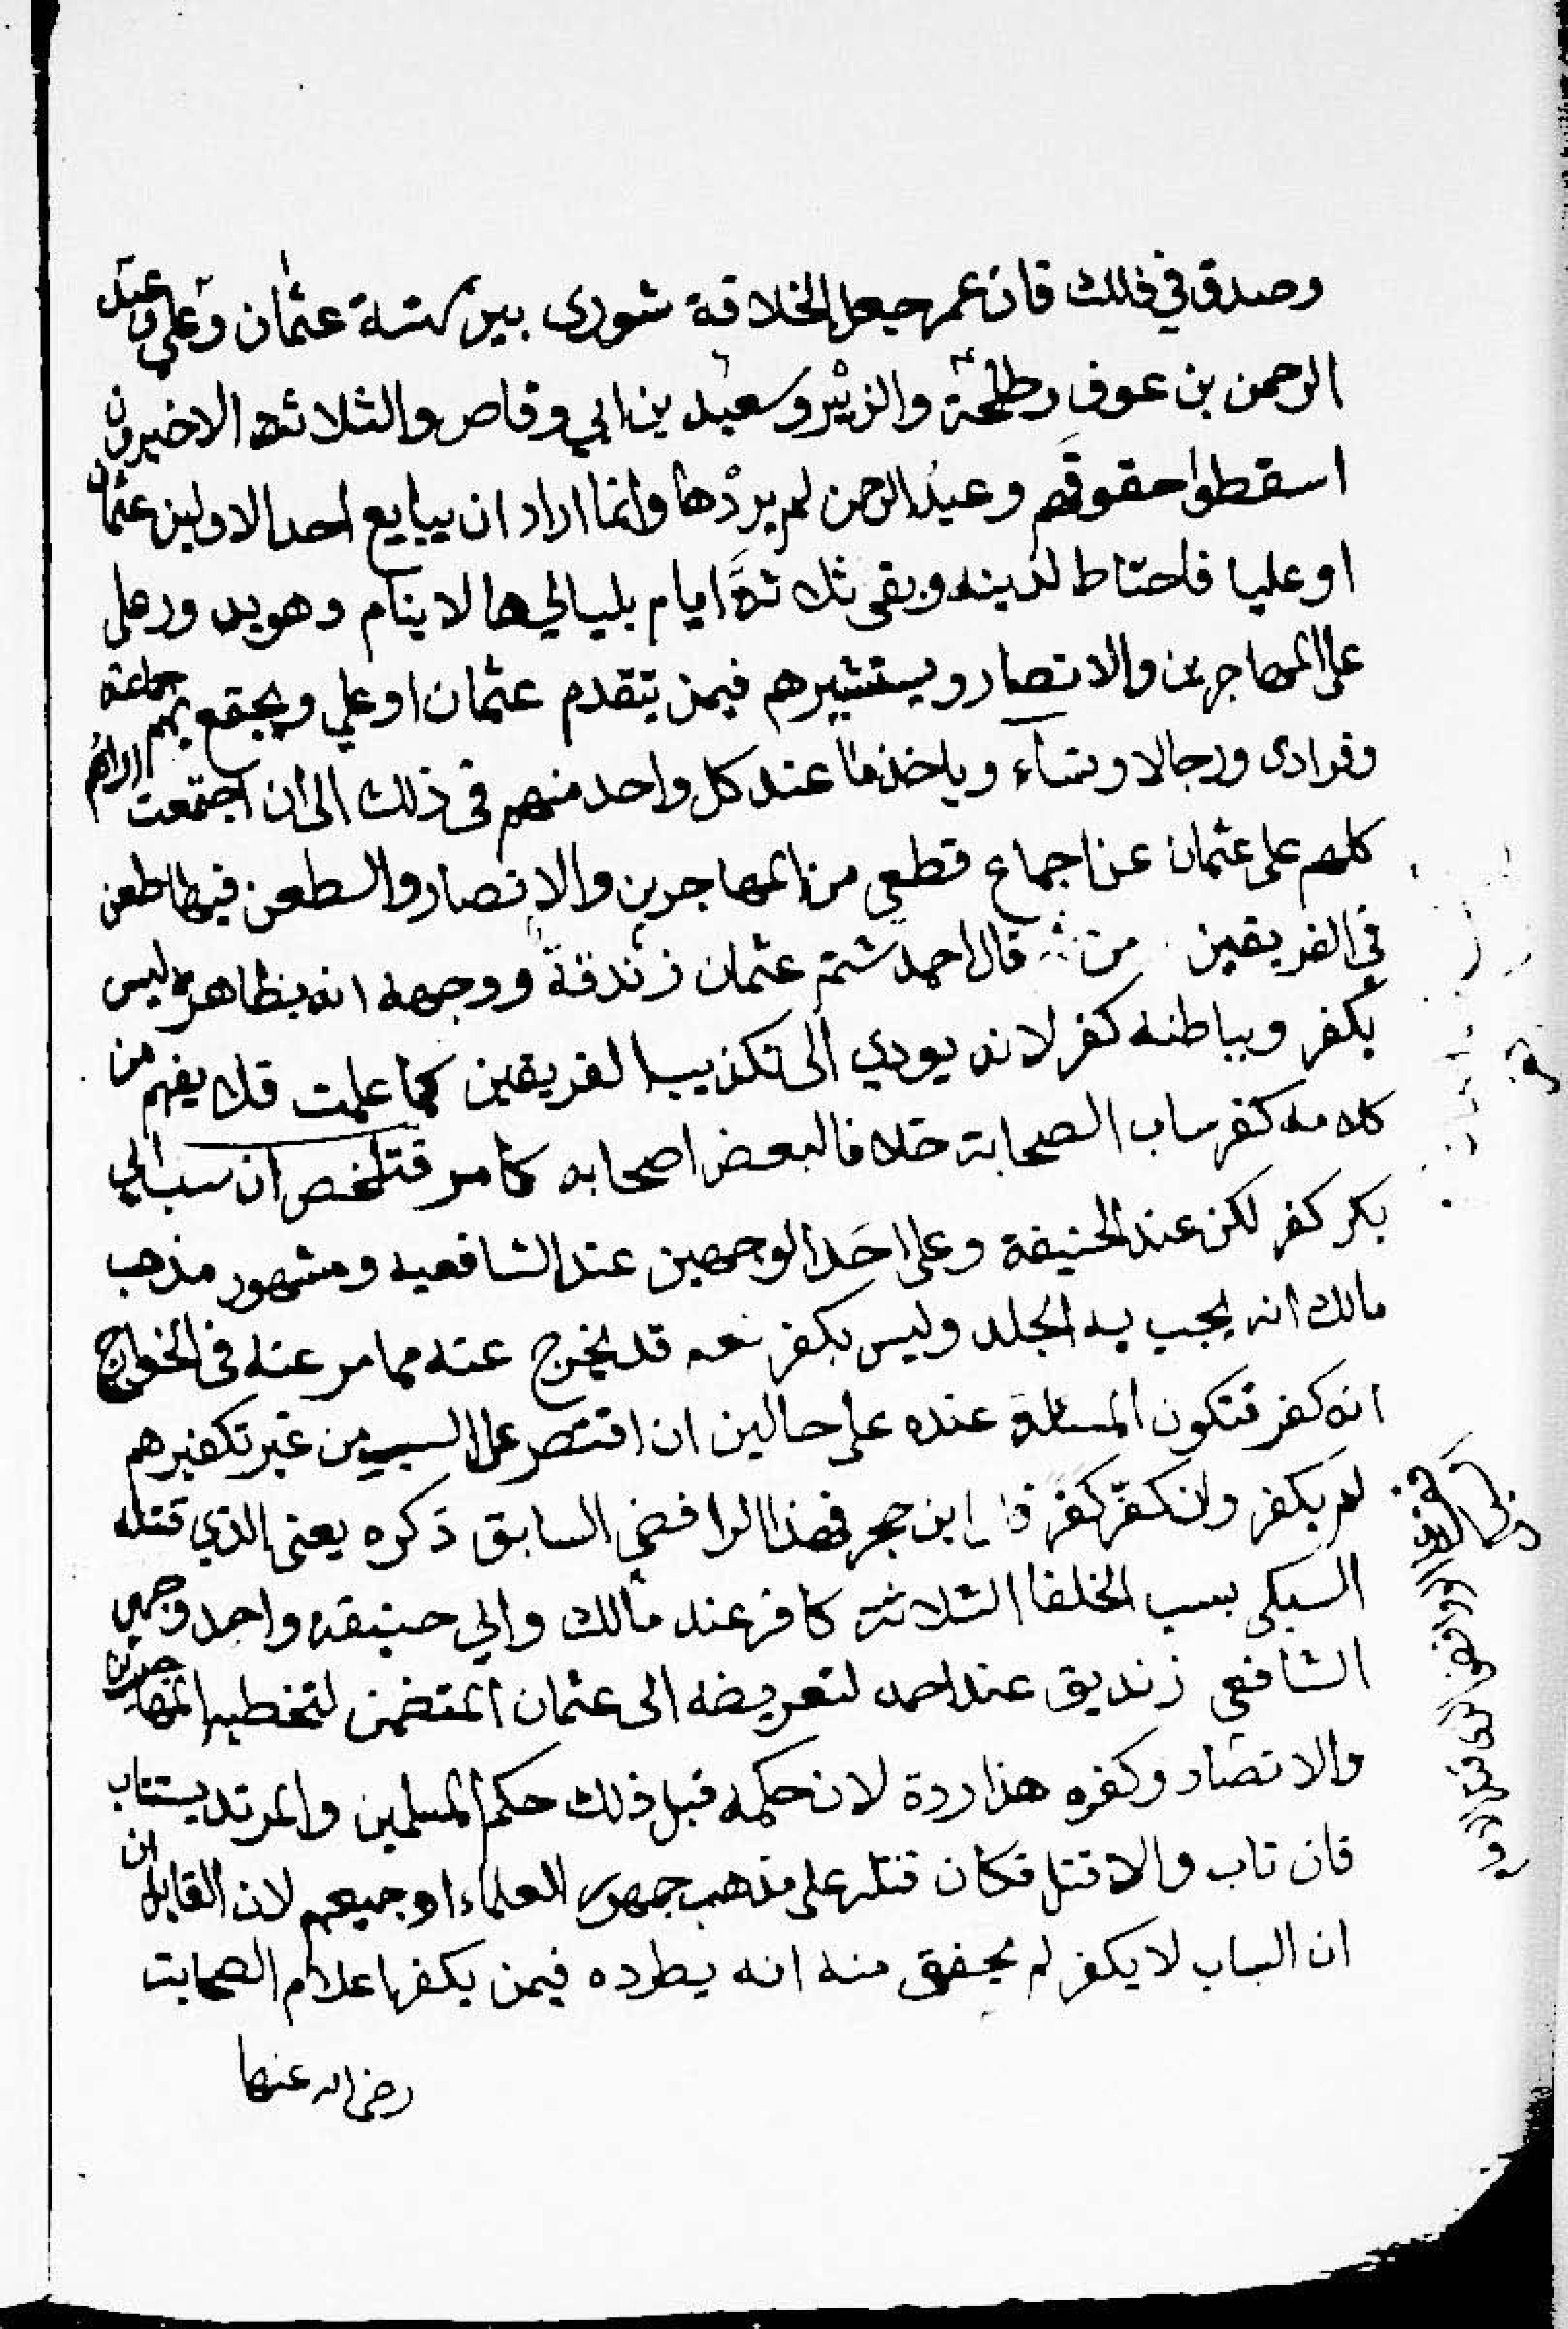 وصدق في ذلك فان عمر جعل الخلافة شورى بين ستة عثمان وعلي وعبد
الرحمن بن عوف وطلحة والزبير وسعيد بن ابي وقاص والثلاثة الاخيرون
اسقطوا حقوقهم وعبد الرحمن لم يردها وانما اراد ان يبايع احد الاولين عثمان
او عليا فاحتاط لدينه وبقى ثلاثة ايام بلياليها لا ينام وهو يدور على
على المهاجرين والانصار ويستشيرهم فيمن يتقدم عثمان او علي ويجتمع بهم جماعة
وفرادى ورجالا ونساء وياخذ ما عند كل واحد منهم في ذلك الى ان اجتمعت اراؤهم
كلهم على عثمان عن اجماع قطعي من المهاجرين والانصار والطعن فيها طعن
في الفريقين من ثم قال احمد شتم عثمان زندقة ووجهه انه بظاهره ليس
بكفر وبباطنه كفر لانه يودي الى تكذيب الفريقين كما علمت فلا يفهم من
كلامه كفر ساب الصحابة خلافا لبعض اصحابه كما مر فتلخص ان سب ابي
بكر كفر لكن عند الحنيفة وعلى احد الوجهين عند الشافعيه ومشهور مذهب
مالك انه يجب به الجلد وليس بكفر نعم قد يخرج عنه مما مر عنه في الخوارج
انه كفر فتكون المسئلة عنده على حالين ان اقتصر على السب من غير تكفيرهم
لم يكفر وان كفّر كفر قال ابن حجر فهذا الرافضي السابق ذكره يعني الذي قتله
السبكي بسب الخلفا الثلاثة كافر عند مالك وابي حنيفة واحد وجهي
الشافعي زنديق عند احمد لتعريضه الى عثمان المتضمن لتخطية المهاجرين
والانصار وكفره هذا ردة لان حكمه قبل ذلك حكم المسلمين والمرتد يستتاب
فان تاب والا قتل فكان قتله على مذهب جمهور العلماء او جميعهم لان القايل ان
ان الساب لا يكفر لم يحقق منه انه يطرده فيمن يكفر اعلام الصحابة
رضي الله عنها